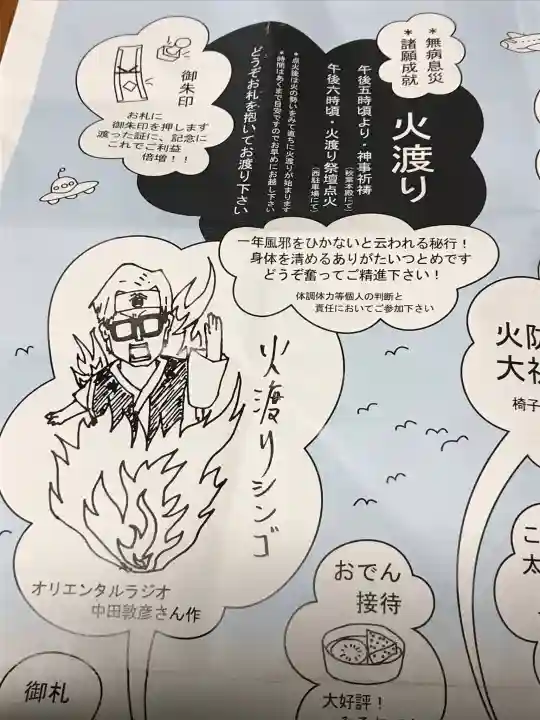 御朱印
お札に
御朱印を押します
渡った証に、記念に
これでご利益
倍増！！
＊無病息災
＊諸願成就
火渡り
午後五時頃より・神事祈祷
（秋葉本殿にて）
午後六時頃・火渡り祭壇点火
（西駐車場にて）
＊点火後は火の勢いをみて直ちに火渡りが始まります
＊時間はあくまで目安ですのでお早めにお越し下さい
どうぞお札を抱いてお渡り下さい
一年風邪をひかないと云われる秘行！
身体を清めるありがたいつとめです
どうぞ奮ってご精進下さい！
体調体力等個人の判断と
責任においてご参加下さい
火渡りシンゴ
オリエンタルラジオ
中田敦彦さん作
火防
大祈
椅子
おでん
接待
大好評！
こ
太
御札